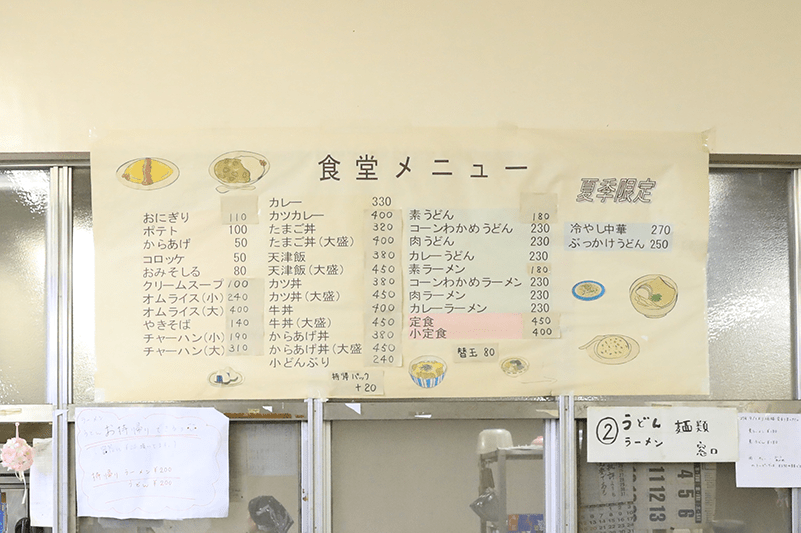 食堂メニュー
おにぎり 110
ポテト 100
からあげ 50
コロッケ 50
おみそしる 80
クリームスープ 100
オムライス(小) 240
オムライス(大) 400
やきそば 140
チャーハン(小) 190
チャーハン(大) 310
カレー 330
カツカレー 400
たまご丼 320
たまご丼(大盛) 400
天津飯 380
天津飯(大盛) 450
カツ丼 380
カツ丼(大盛) 450
牛丼 400
牛丼(大盛) 450
からあげ丼 380
からあげ丼(大盛 450
小どんぶり 240
持帰パック
+20
素うどん 180
コーンわかめうどん 230
肉うどん 230
カレーうどん 230
素ラーメン 180
コーンわかめラーメン 230
肉ラーメン 230
カレーラーメン 230
定食 450
小定食 400
替玉 80
夏季限定
冷やし中華 270
ぶっかけうどん 250
お持帰り
持帰り ラーメン ¥200
②うどん 麺類
ラーメン 窓口
11 12 13
4 5 6